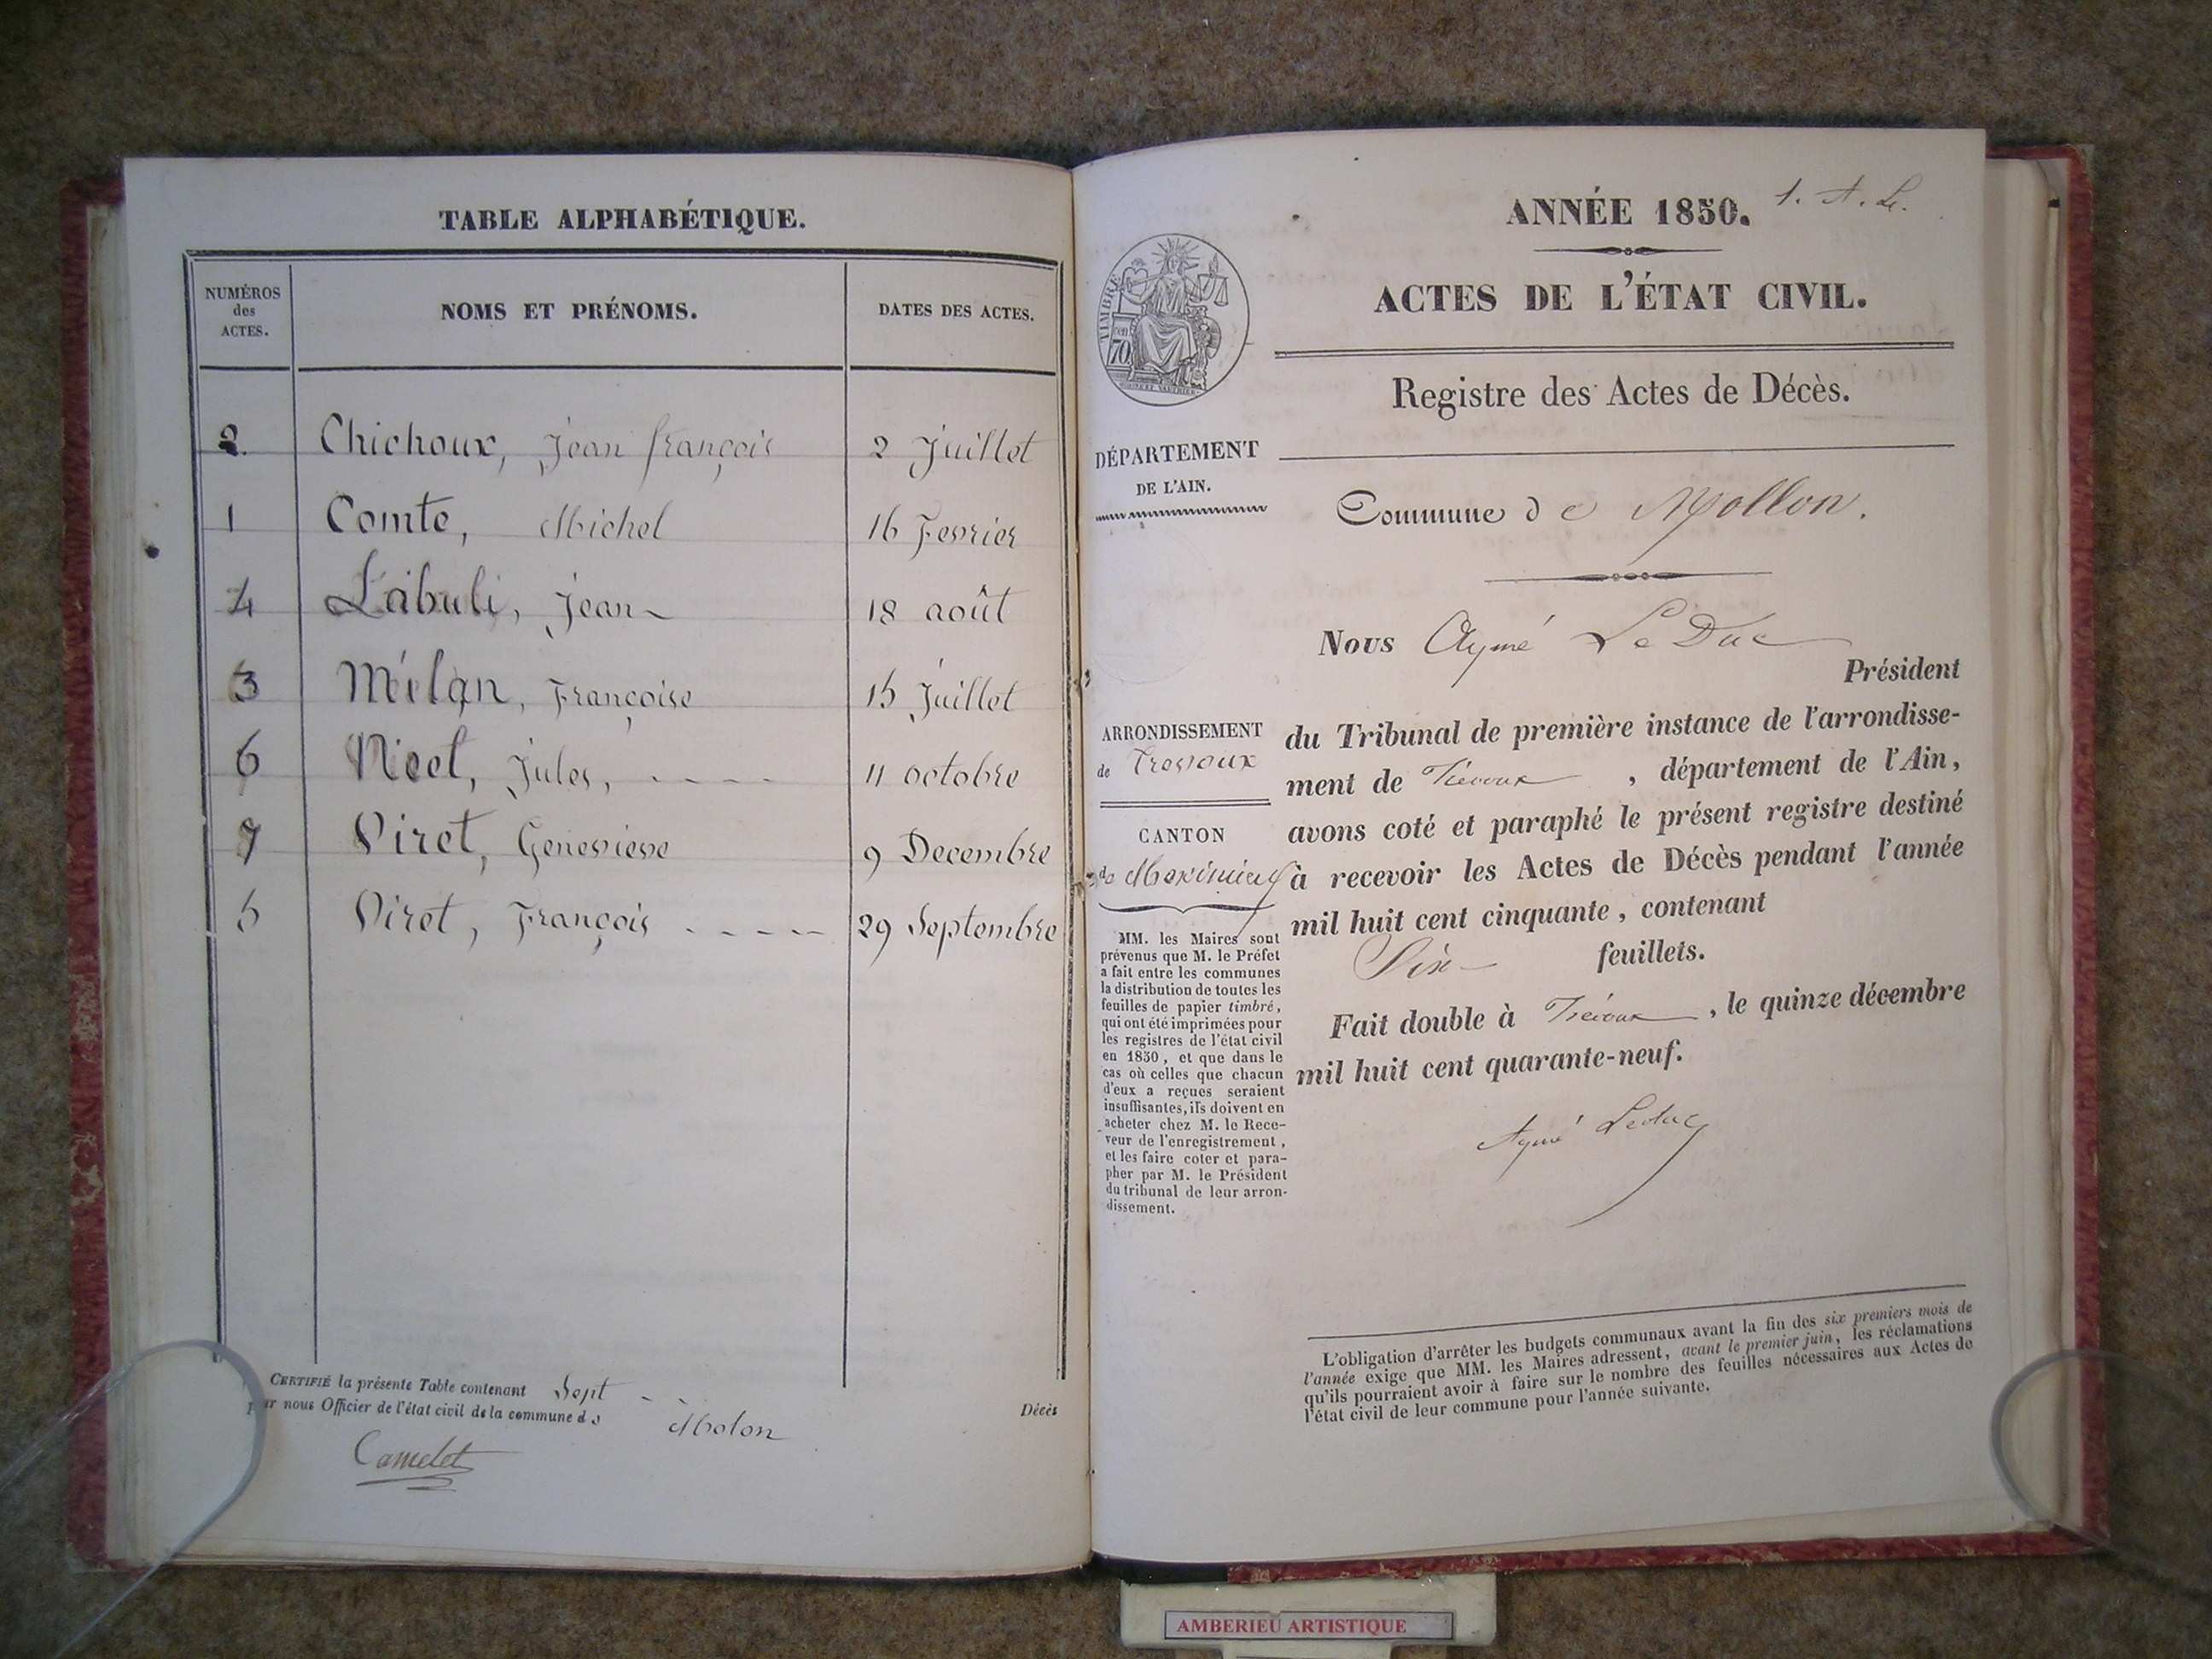 TABLE ALPHABÉTIQUE.
NUMÉROS
des
ACTES.
NOMS ET PRÉNOMS.
DATES DES ACTES.
2. Chichoux, Jean françois 2 Juillet
1 Comte, Michel 16 Fevrier
4 Labuli, Jean 18 août
3 Mélan, Françoise 15 Juillet
6 Niel, Jules, - - - - 11 octobre
7 Viret, Genevieve 9 Decembre
5 Viret, François - - - - - 29 Septembre
CERTIFIÉ la présente Table contenant Sept - -
par nous Officier de l'état civil de la commune de Molon Décès
Camelet
ANNÉE 1850. 1. A. L.
ACTES DE L'ÉTAT CIVIL.
Registre des Actes de Décès.
TIMBRE
70
DÉPARTEMENT
DE L'AIN.
Commune de Mollon.
Nous Aymé Le Duc
Président
du Tribunal de première instance de l'arrondisse-
ment de Trévoux, département de l'Ain,
avons coté et paraphé le présent registre destiné
à recevoir les Actes de Décès pendant l'année
mil huit cent cinquante, contenant
Six feuillets.
Fait double à Trévoux, le quinze décembre
mil huit cent quarante-neuf.
Aymé Leduc
ARRONDISSEMENT
de Trevoux
CANTON
de Meximieux
MM. les Maires sont
prévenus que M. le Préfet
a fait entre les communes
la distribution de toutes les
feuilles de papier timbré,
qui ont été imprimées pour
les registres de l'état civil
en 1850, et que dans le
cas où celles que chacun
d'eux a reçues seraient
insuffisantes, ils doivent en
acheter chez M. le Rece-
veur de l'enregistrement,
et les faire coter et para-
pher par M. le Président
du tribunal de leur arron-
dissement.
L'obligation d'arrêter les budgets communaux avant la fin des six premiers mois de
l'année exige que MM. les Maires adressent, avant le premier juin, les réclamations
qu'ils pourraient avoir à faire sur le nombre des feuilles nécessaires aux Actes de
l'état civil de leur commune pour l'année suivante.
AMBERIEU ARTISTIQUE